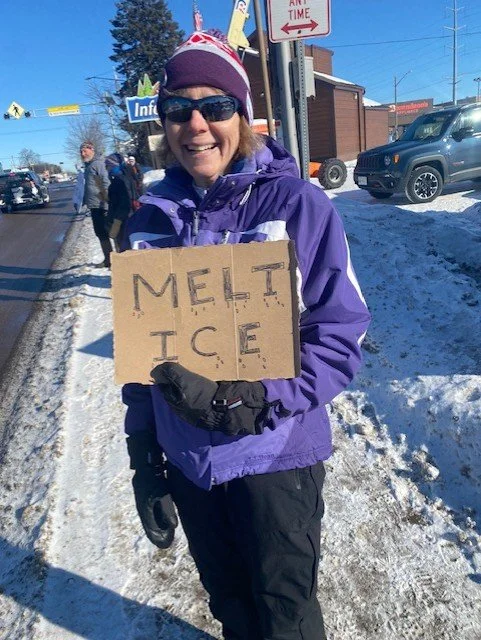 ANY
TIME
Info
MELT
ICE